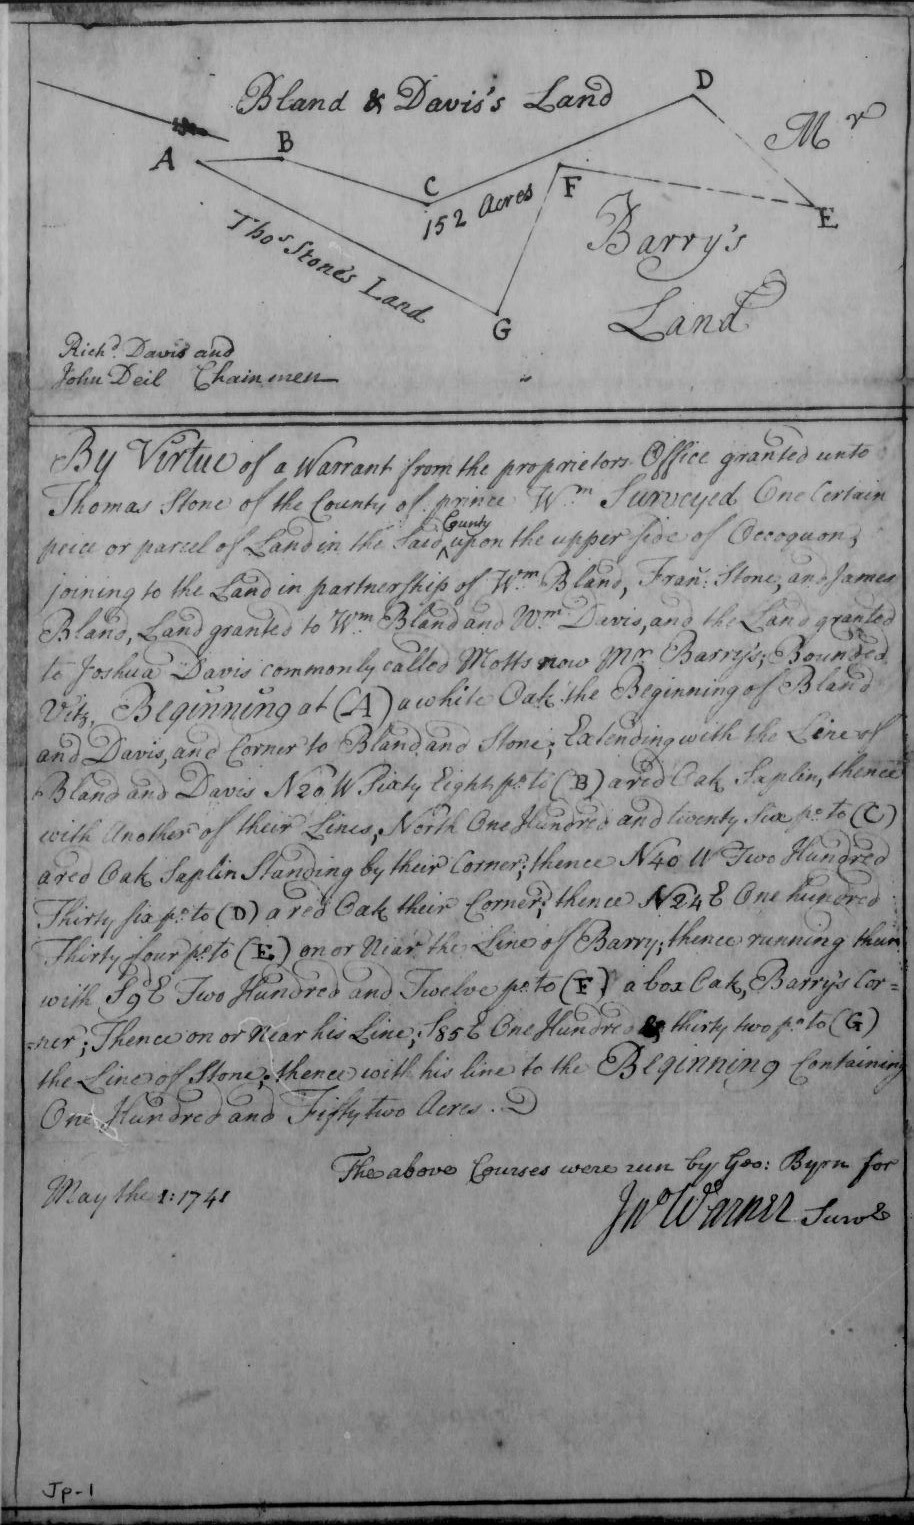 Bland & Davis's Land
D
Mr
A
B
C
152 Acres
F
E
Barry's
Thos Stone's Land
Land
G
Richd. Davis and
John Deil Chainmen
By Virtue of a Warrant from the proprietors Office granted unto
Thomas Stone of the County of prince Wm Surveyed One Certain
peice or parcel of Land in the Said County upon the upper side of Occoquon,
joining to the Land in partnership of Wm Bland, Fran: Stone, and James
Bland, Land granted to Wm Bland and Wm Davis, and the Land granted
to Joshua Davis commonly called Motts now Mr Barry's; Bounded
Vitz, Beginning at (A) a white Oak the Beginning of Bland
and Davis, and Corner to Bland and Stone; Extending with the Line of
Bland and Davis N20W Sixty Eight po. to (B) a red Oak Saplin, thence
with Another of their Lines, North One Hundred and twenty Six po. to (C)
a red Oak Saplin Standing by their Corner; thence N40W Two Hundred
Thirty six po. to (D) a red Oak their Corner; thence N24E One hundred
Thirty four po. to (E) on or Near the Line of Barry; thence running
with S9E Two Hundred and Twelve po. to (F) a box Oak, Barry's Cor=
=ner; Thence on or Near his Line; S85E One Hundred & thirty two po. to (G)
the Line of Stone; thence with his line to the Beginning Containing
One Hundred and Fifty two Acres.
The above Courses were run by Geo: Byrn for
May the 1: 1741
Jno Warner Survr
Jp-1